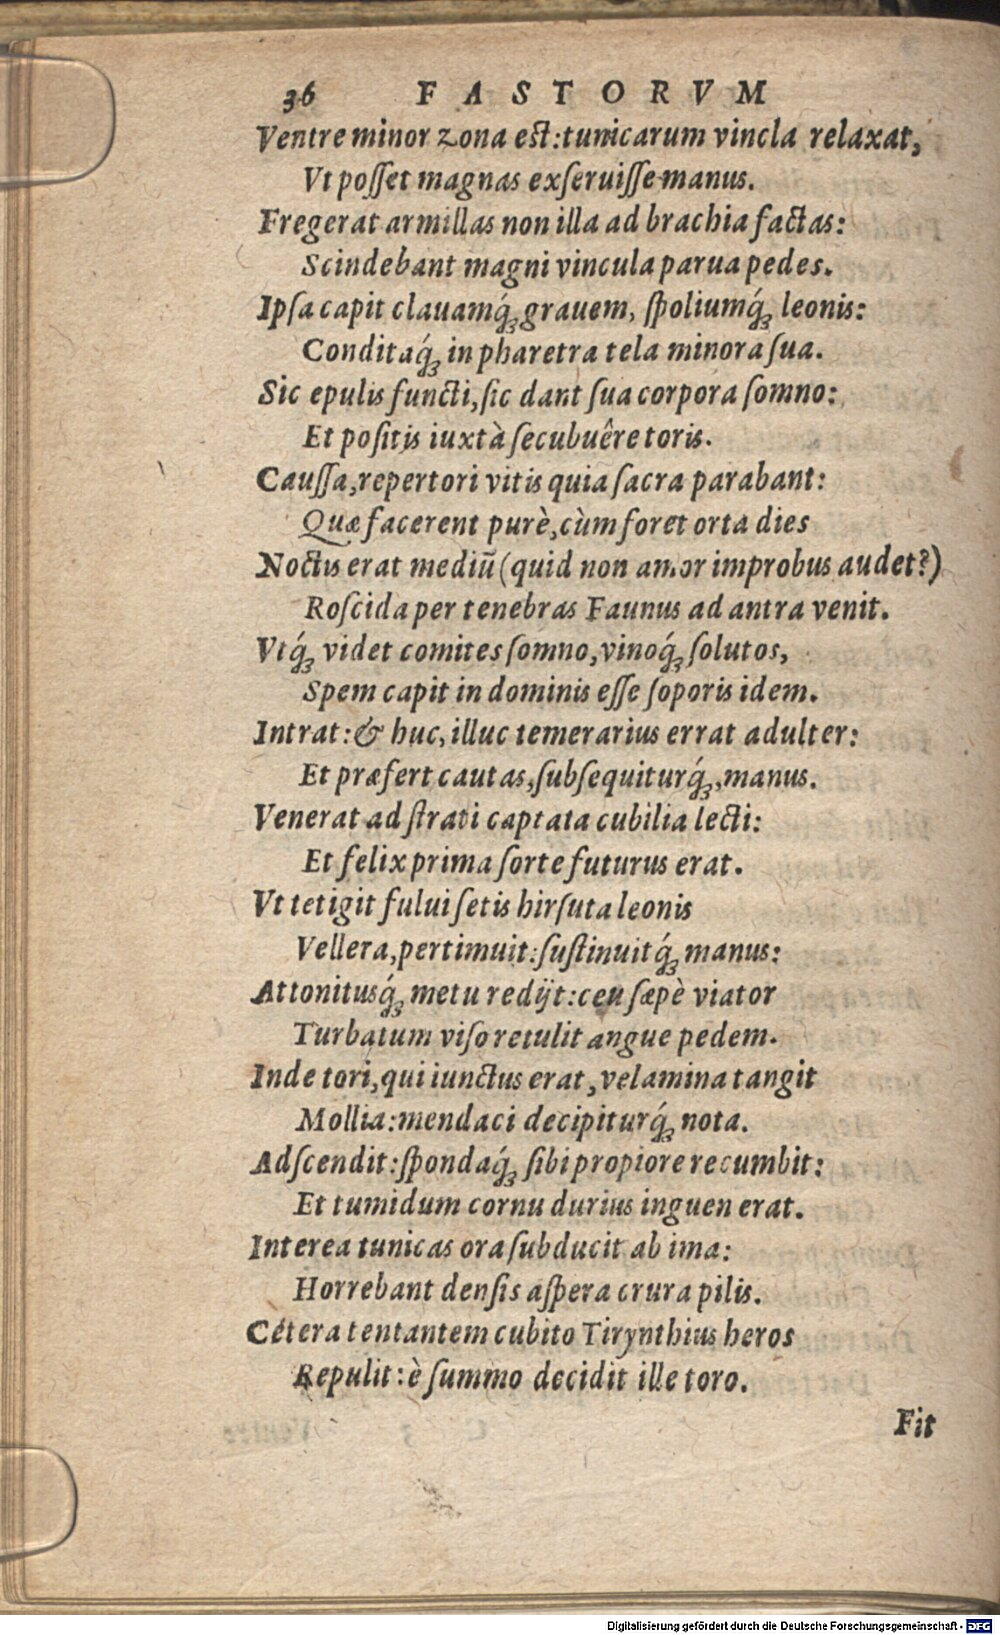 36 FASTORVM
Ventre minor zona est: tunicarum vincla relaxat,
Vt poſſet magnas exſeruiſſe manus.
Fregerat armillas non illa ad brachia factas:
Scindebant magni vincula parua pedes.
Ipſa capit clauamq́ꝫ grauem, ſpoliumq́ꝫ leonis:
Conditaq́ꝫ in pharetra tela minora ſua.
Sic epulis functi, ſic dant ſua corpora ſomno:
Et poſitis iuxtà ſecubuêre toris.
Cauſſa, repertori vitis quia ſacra parabant:
Quæ facerent purè, cùm foret orta dies
Noctis erat mediū (quid non amor improbus audet?)
Roſcida per tenebras Faunus ad antra venit.
Vtq́ꝫ videt comites ſomno, vinoq́ꝫ ſolutos,
Spem capit in dominis eſſe ſoporis idem.
Intrat: & huc, illuc temerarius errat adulter:
Et præfert cautas, ſubſequiturq́ꝫ, manus.
Venerat ad ſtrati captata cubilia lecti:
Et felix prima ſorte futurus erat.
Vt tetigit fului ſetis hirſuta leonis
Vellera, pertimuit: ſuſtinuitq́ꝫ manus:
Attonitusq́ꝫ metu redijt: ceu ſæpè viator
Turbatum viſo retulit angue pedem.
Inde tori, qui iunctus erat, velamina tangit
Mollia: mendaci decipiturq́ꝫ nota.
Adſcendit: ſpondaq́ꝫ ſibi propiore recumbit:
Et tumidum cornu durius inguen erat.
Interea tunicas ora ſubducit ab ima:
Horrebant denſis aſpera crura pilis.
Cétera tentantem cubito Tirynthius heros
Repulit: è ſummo decidit ille toro.
Fit
Digitalisierung gefördert durch die Deutsche Forschungsgemeinschaft - DFG